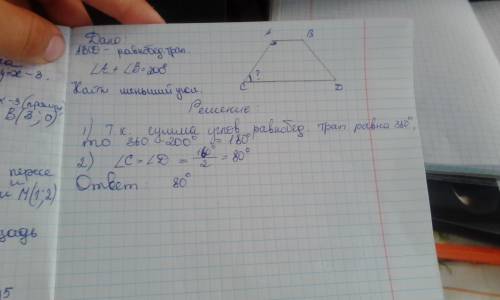 Дано:
ABCD - равнобед. трап.
∠A + ∠B = 200°
Найти меньший угол.
A B
?
C D
Решение:
1) Т.к. сумма углов равнобед. трап. равна 360°,
то 360 - 200° = 160°
2) ∠C = ∠D = 160°/2 = 80°
Ответ: 80°
y=x-3.
B(3; 0)
и M(1; 2)